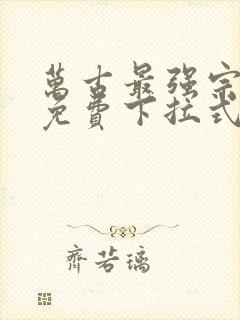 萬古最强宗
免費下拉式
齊若璃